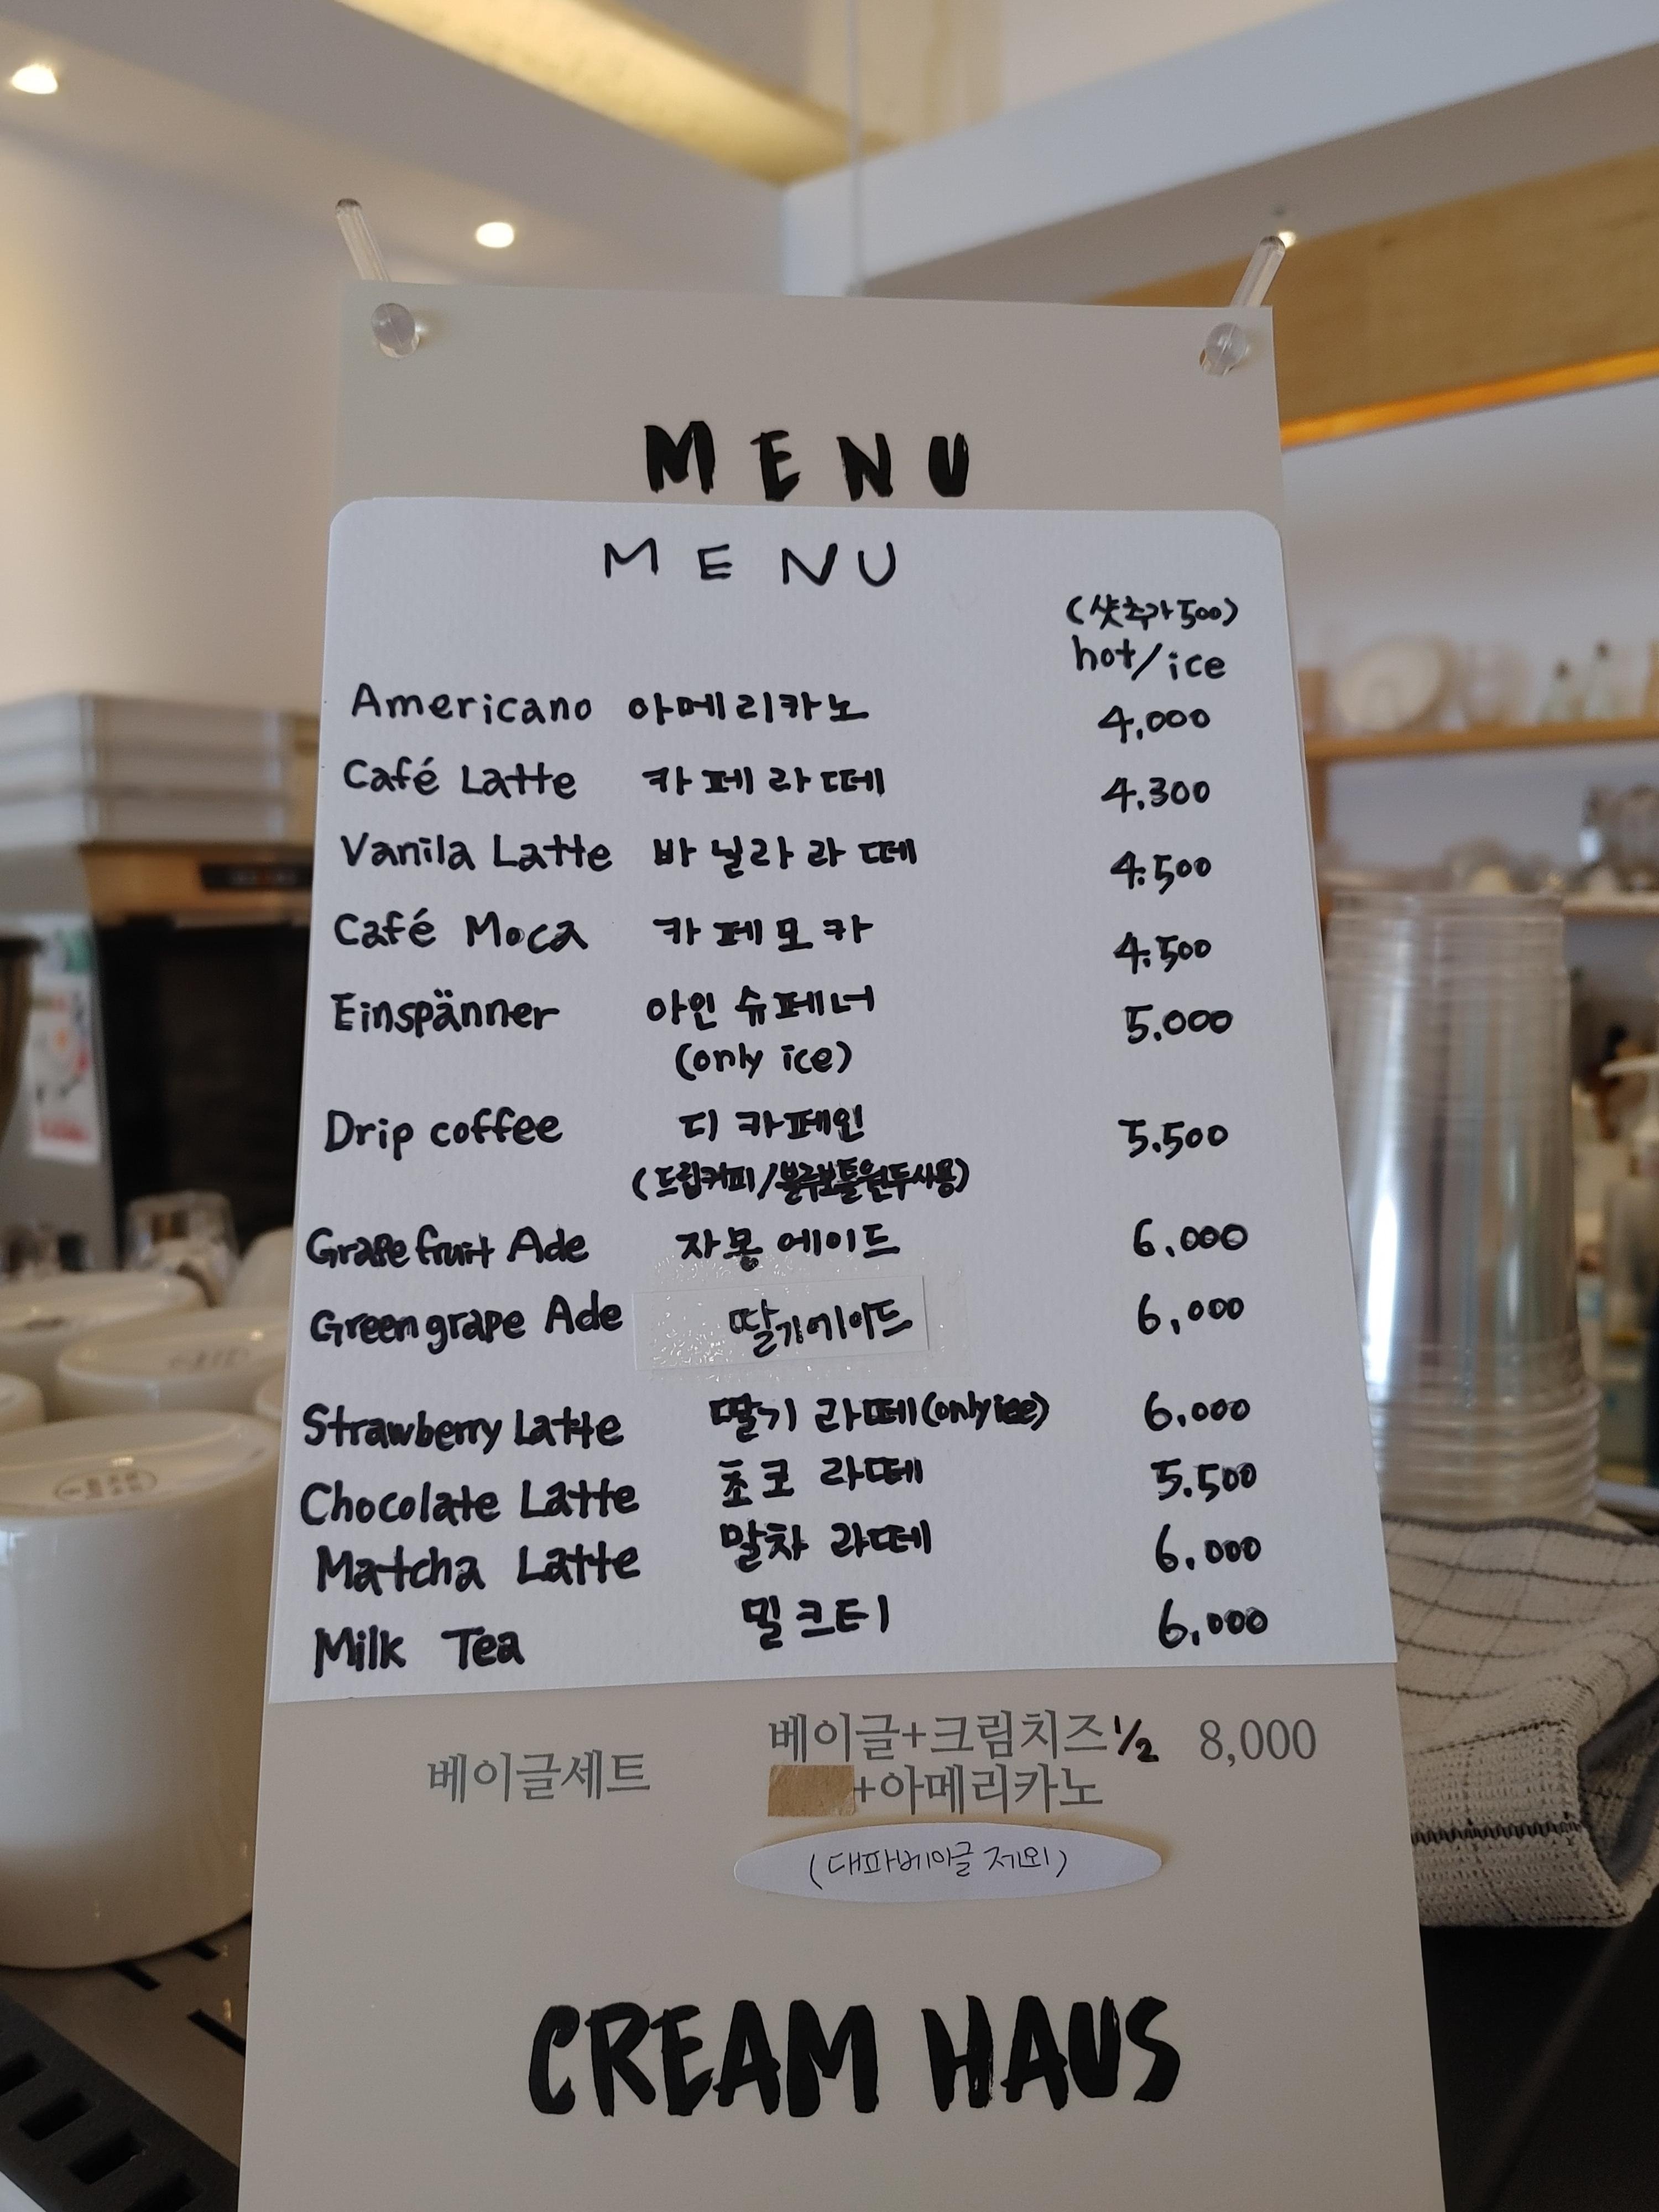 MENU
MENU
(샷추가 500)
hot/ice
Americano 아메리카노 4,000
Café Latte 카페라떼 4.300
Vanila Latte 바닐라라떼 4.500
Café Moca 카페모카 4.500
Einspänner 아인슈페너 5.000
(only ice)
Drip coffee 디카페인 5.500
(드립커피/블루보틀원두사용)
Grapefruit Ade 자몽에이드 6.000
Green grape Ade 딸기에이드 6,000
Strawberry Latte 딸기 라떼(only ice) 6.000
Chocolate Latte 초코 라떼 5.500
Matcha Latte 말차 라떼 6.000
Milk Tea 밀크티 6,000
베이글세트 베이글+크림치즈 1/2 8,000
+아메리카노
(대파베이글 제외)
CREAM HAUS